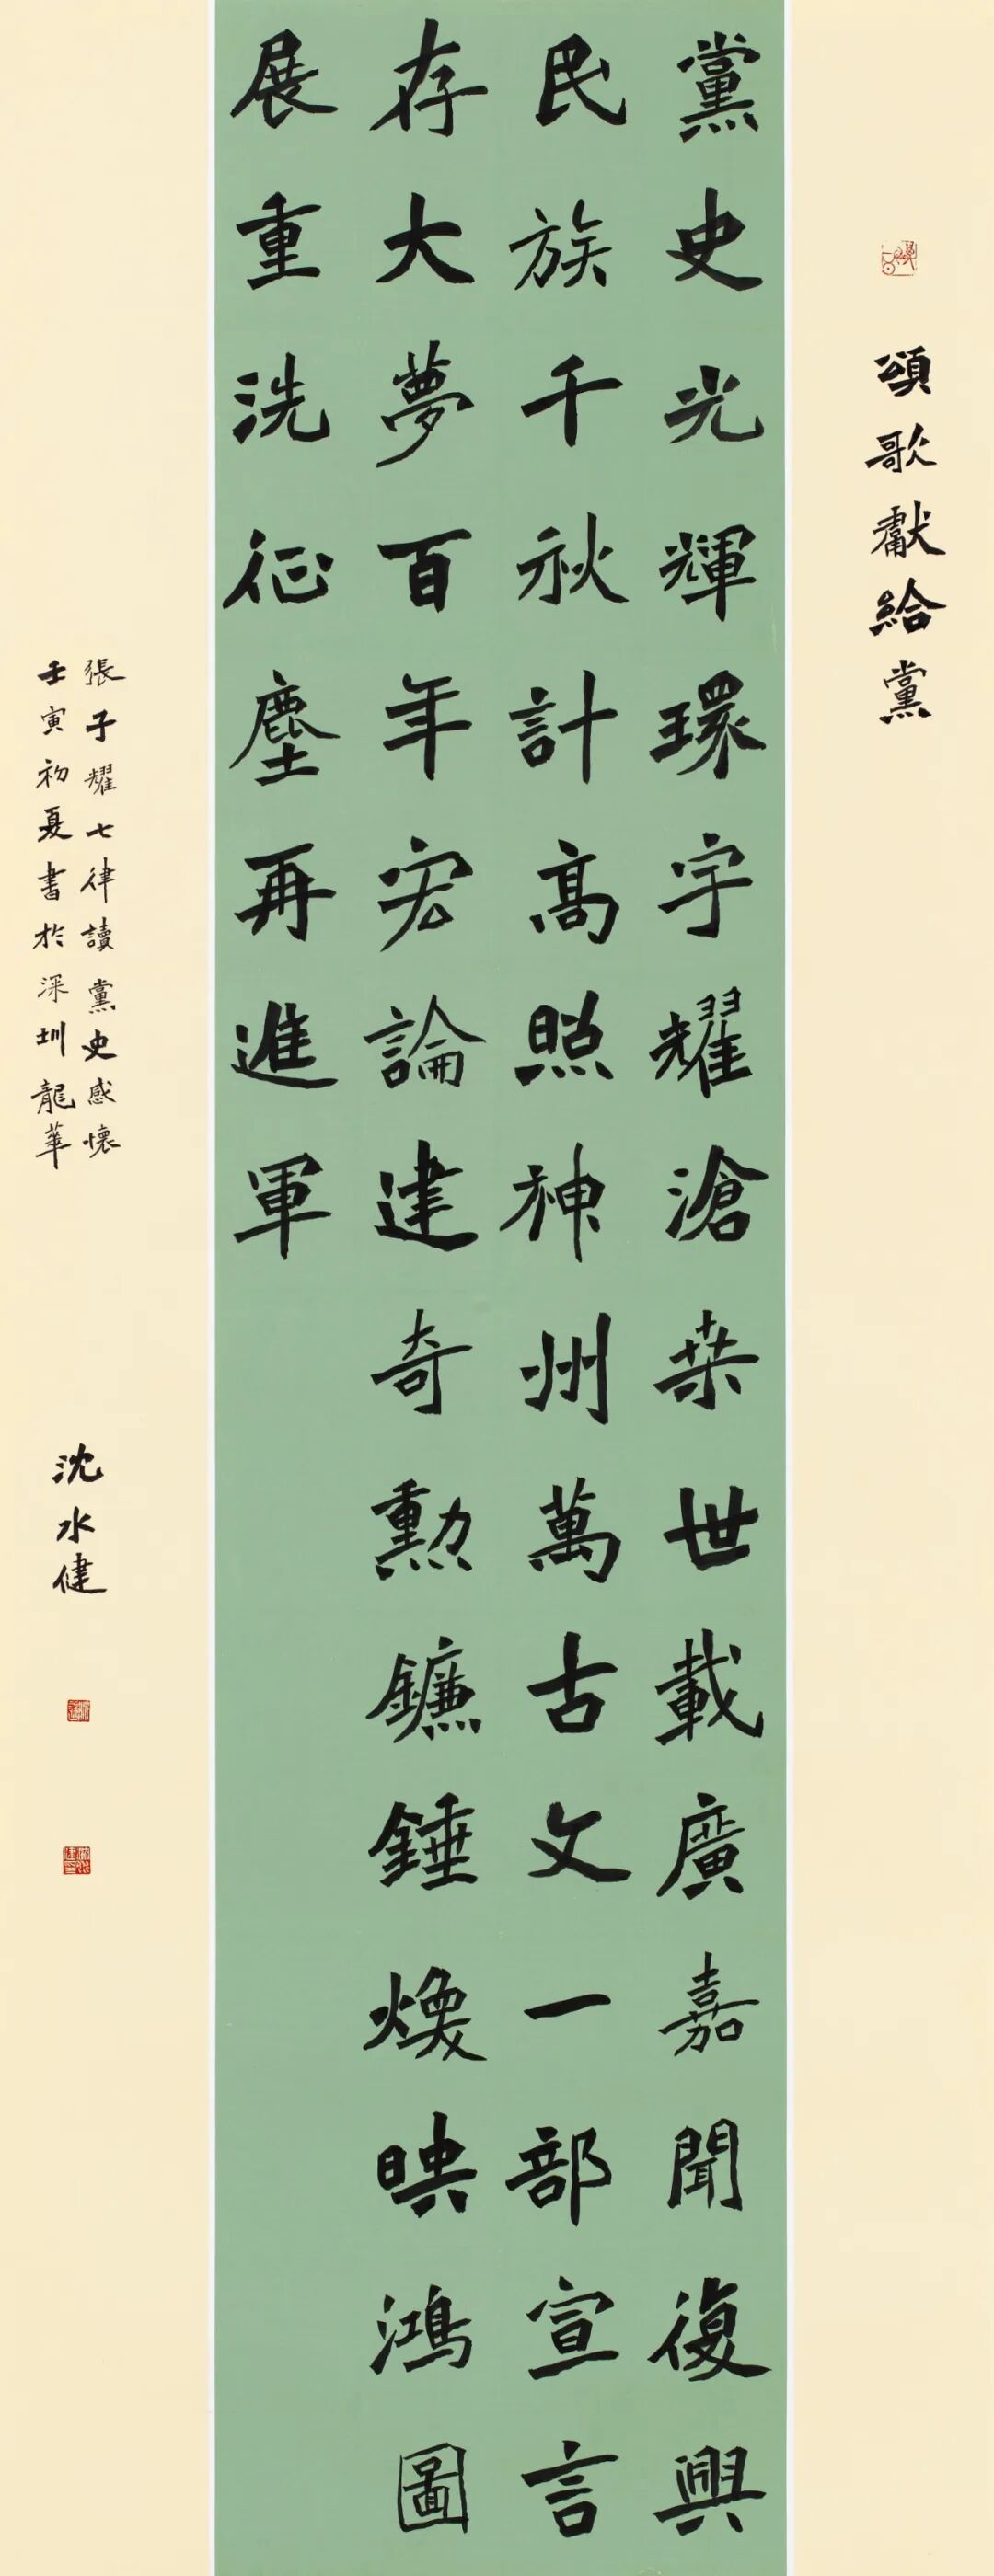 頌歌獻給黨
黨史光輝環宇耀滄桒世載廣嘉聞復興
民族千秋計高照神州萬古文一部宣言
存大夢百年宏論建奇勲鐮錘煥映鴻圖
展重洗征塵再進軍
張子耀七律讀黨史感懷
壬寅初夏書於深圳龍華
沈水健